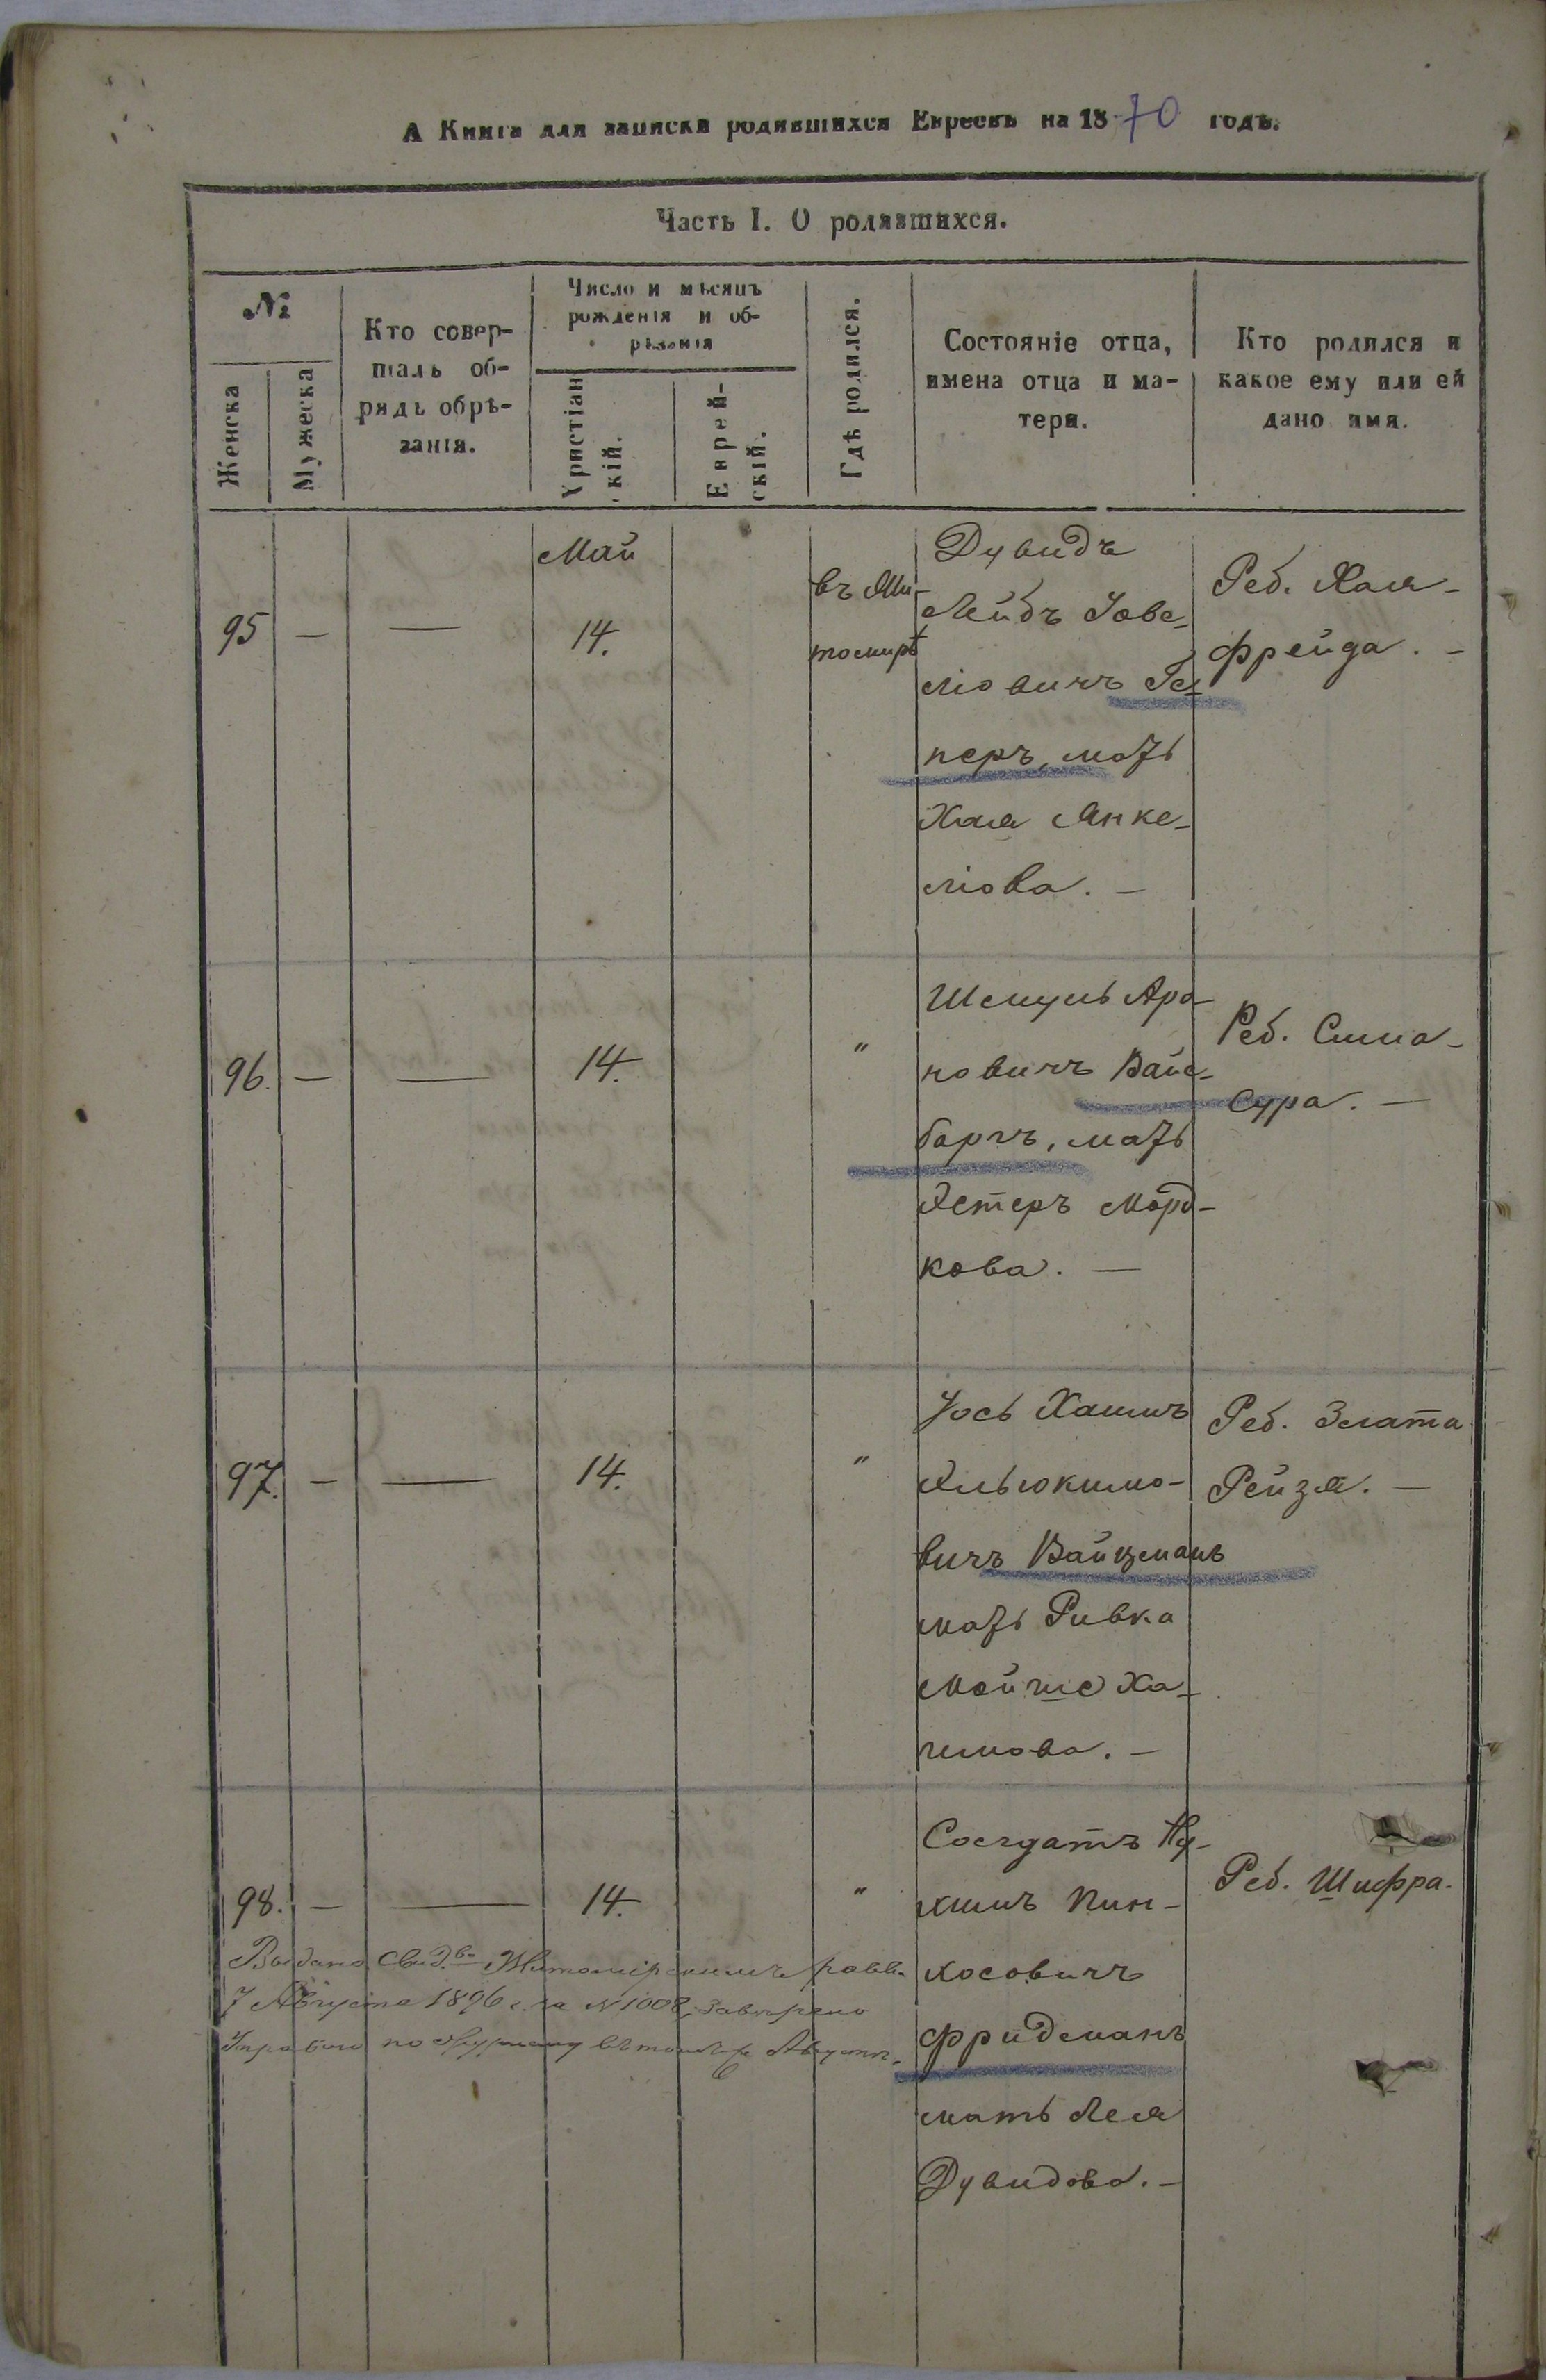 А Книга для записки родившихся Евреевъ на 1870 годъ.
Часть I. О родившихся.
№
Женска
Мужеска
Кто совер-
шалъ об-
рядъ обрѣ-
занія.
Число и мѣсяцъ
рожденія и об-
рѣзанія
Христіан
скій.
Еврей-
скій.
Гдѣ родился.
Состояніе отца,
имена отца и ма-
тери.
Кто родился и
какое ему или ей
дано имя.
Май
95 — — 14.
въ Жи-
томирѣ
Дувидъ
Лейбъ Іове-
ліовичъ Ге-
перъ, мать
Хая Янке-
ліова. —
Реб. Хая-
Фрейда. —
96. — — 14. "
Шмуль Аро-
новичъ Вайс-
баргъ, мать
Эстеръ Морд-
кова. —
Реб. Сима-
Сура. —
97. — — 14. "
Іось Хаимъ
Эльюкимо-
вичъ Вайцманъ
мать Ривка
Мойше Ха-
имова. —
Реб. Злата
Рейзя. —
98. — — 14. "
Солдатъ Ну-
химъ Пин-
хосовичъ
Фридманъ
мать Лея
Дувидова. —
Реб. Шифра.
Выдано свид.во Житомірскимъ равв.
7 Августа 1896 г. за N 1008,